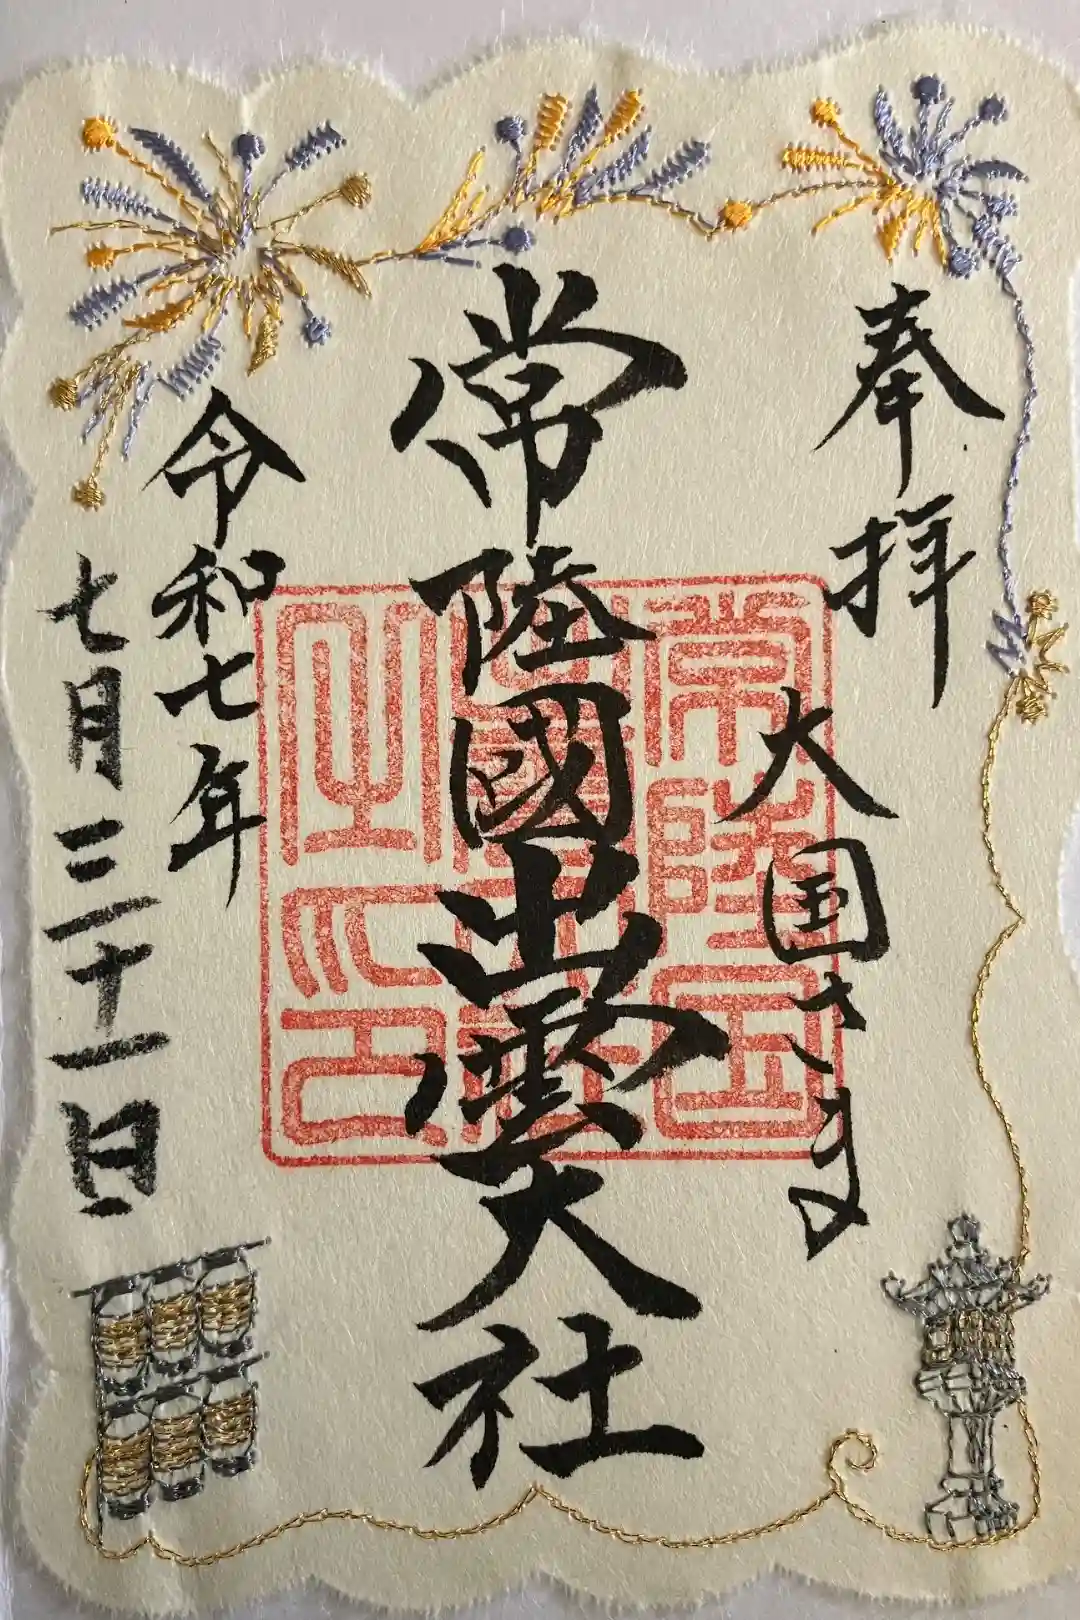 奉拝
大国さま
常陸國出雲大社
令和七年
七月三十一日
常陸国